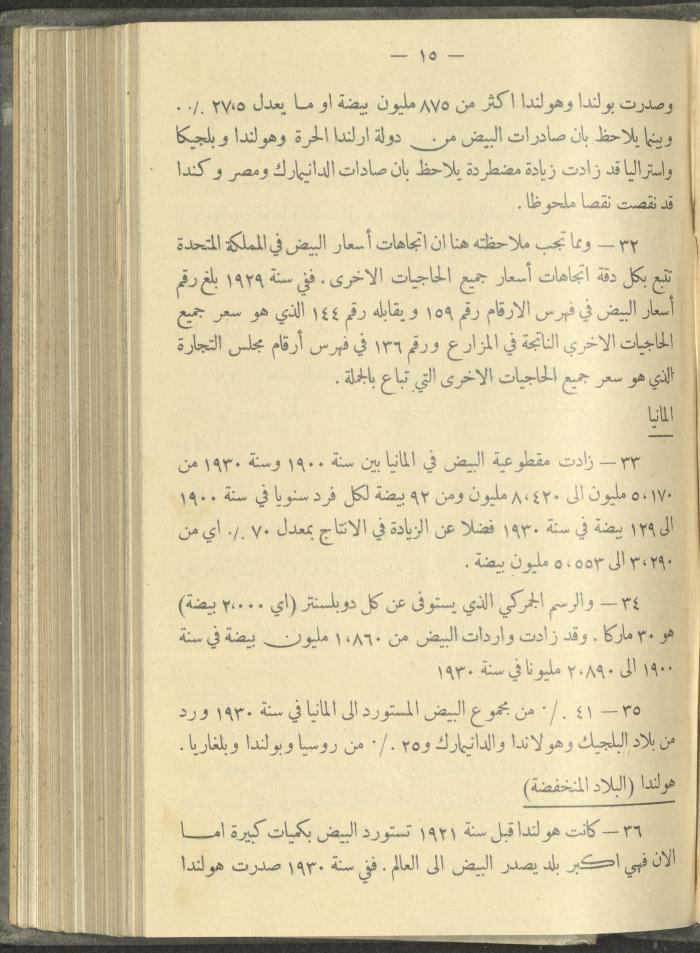 — ١٥ —
وصدرت بولندا وهولندا اكثر من ٨٧٥ مليون بيضة او ما يعدل ٢٧،٥ ٪.
وبينما يلاحظ بان صادرات البيض من دولة ارلندا الحرة وهولندا وبلجيكا
واستراليا قد زادت زيادة مضطردة يلاحظ بان صادات الدانيمارك ومصر وكندا
قد نقصت نقصا ملحوظا .
٣٢ — ومما تجب ملاحظته هنا ان اتجاهات أسعار البيض في المملكة المتحدة
تتبع بكل دقة اتجاهات أسعار جميع الحاجيات الاخرى . ففي سنة ١٩٢٩ بلغ رقم
أسعار البيض في فهرس الارقام رقم ١٥٩ ويقابله رقم ١٤٤ الذي هو سعر جميع
الحاجيات الاخرى الناتجة في المزارع ورقم ١٣٦ في فهرس أرقام مجلس التجارة
الذي هو سعر جميع الحاجيات الاخرى التي تباع بالجملة .
المانيا
٣٣ — زادت مقطوعية البيض في المانيا بين سنة ١٩٠٠ وسنة ١٩٣٠ من
٥،١٧٠ مليون الى ٨،٤٢٠ مليون ومن ٩٢ بيضة لكل فرد سنويا في سنة ١٩٠٠
الى ١٢٩ بيضة في سنة ١٩٣٠ فضلا عن الزيادة في الانتاج بمعدل ٧٠ ٪ اي من
٣،٢٩٠ الى ٥،٥٥٣ مليون بيضة .
٣٤ — والرسم الجمركي الذي يستوفى عن كل دوبلسنتر (اي ٢،٠٠٠ بيضة)
هو ٣٠ ماركا . وقد زادت واردات البيض من ١،٨٦٠ مليون بيضة في سنة
١٩٠٠ الى ٢،٨٩٠ مليونا في سنة ١٩٣٠
٣٥ — ٤١ ٪ من مجموع البيض المستورد الى المانيا في سنة ١٩٣٠ ورد
من بلاد البلجيك وهولاندا والدانيمارك و٢٥ ٪ من روسيا وبولندا وبلغاريا .
هولندا (البلاد المنخفضة)
٣٦ — كانت هولندا قبل سنة ١٩٢١ تستورد البيض بكميات كبيرة اما
الان فهي اكبر بلد يصدر البيض الى العالم . ففي سنة ١٩٣٠ صدرت هولندا